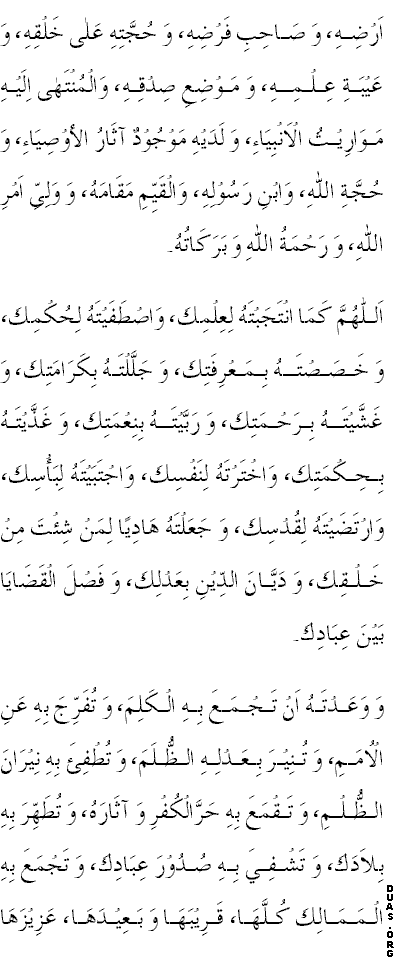 اَرْضِهِ، وَ صَاحِبِ فَرْضِهِ، وَ حُجَّتِهِ عَلٰى خَلْقِهِ، وَ
عَيْبَةِ عِلْمِهِ، وَ مَوْضِعِ صِدْقِهِ، وَالْمُنْتَهٰى اِلَيْهِ
مَوَارِيْثُ الْاَنْبِيَاءِ، وَ لَدَيْهِ مَوْجُوْدٌ آثَارُ الأَوْصِيَاءِ، وَ
حُجَّةِ اللهِ، وَابْنِ رَسُوْلِهِ، وَالْقَيِّمِ مَقَامَهُ، وَ وَلِيِّ اَمْرِ
اللهِ، وَ رَحْمَةُ اللهِ وَ بَرَكَاتُهُ۔
اَللّٰهُمَّ كَمَا انْتَجَبْتَهُ لِعِلْمِكَ، وَاصْطَفَيْتَهُ لِحُكْمِكَ،
وَ خَصَصْتَهُ بِمَعْرِفَتِكَ، وَ جَلَّلْتَهُ بِكَرَامَتِكَ، وَ
غَشَّيْتَهُ بِرَحْمَتِكَ، وَ رَبَّيْتَهُ بِنِعْمَتِكَ، وَ غَذَّيْتَهُ
بِحِكْمَتِكَ، وَاخْتَرْتَهُ لِنَفْسِكَ، وَاجْتَبَيْتَهُ لِبَأْسِكَ،
وَارْتَضَيْتَهُ لِقُدْسِكَ، وَ جَعَلْتَهُ هَادِيًا لِمَنْ شِئْتَ مِنْ
خَلْقِكَ، وَ دَيَّانَ الدِّيْنِ بِعَدْلِكَ، وَ فَصْلَ الْقَضَايَا
بَيْنَ عِبَادِكَ۔
وَ وَعَدْتَهُ اَنْ تَجْمَعَ بِهِ الْكَلِمَ، وَ تُفَرِّجَ بِهِ عَنِ
الْاُمَمِ، وَ تُنِيْرَ بِعَدْلِهِ الظُّلَمَ، وَ تُطْفِئَ بِهِ نِيْرَانَ
الظُّلْمِ، وَ تَقْمَعَ بِهِ حَرَّالْكُفْرِ وَ آثَارَهُ، وَ تُطَهِّرَ بِهِ
بِلاَدَكَ، وَ تَشْفِيَ بِهِ صُدُوْرَ عِبَادِكَ، وَ تَجْمَعَ بِهِ
الْمَمَالِكَ كُلَّهَا، قَرِيْبَهَا وَ بَعِيْدَهَا، عَزِيْزَهَا
DUAS.ORG